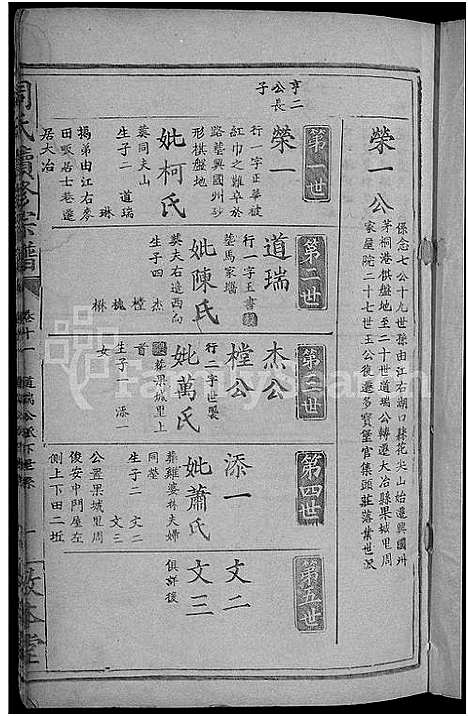 榮一公
係念七公十九世孫由江右湖口縣花尖山始遷興國州
茅桐港棋盤地至二十世道瑞公轉遷大冶縣果城里周
家屋院二十七世王公後遷多寶堡官集頭莊落葉世派
亨二
公長
子
第一世
榮一
行一字正華被
紅巾之難卒於
路塟興國州砂
形棋盤地
妣柯氏
葬同夫山
生子二 道瑞
琳
揭弟由江右麥
田畈居士巷遷
居大冶
第二世
道瑞
行一字玉書
塟馬家墻
妣陳氏
葬夫右邉西向
生子四
杰
樘
槐
楙
第三世
杰公
樘公
行二字世製
妣萬氏
葬果城里上
首
生子一 添一
女
第四世
添一
妣蕭氏
葬雞婆林夫婦
同塋
生子二 文二
文三
公置果城里周
俊安中門屋左
側上下田二坵
第五世
文二
文三
俱詳後
周氏續修宗譜
卷十一
道瑞公派下世系
一
敬本堂
FamilySearch